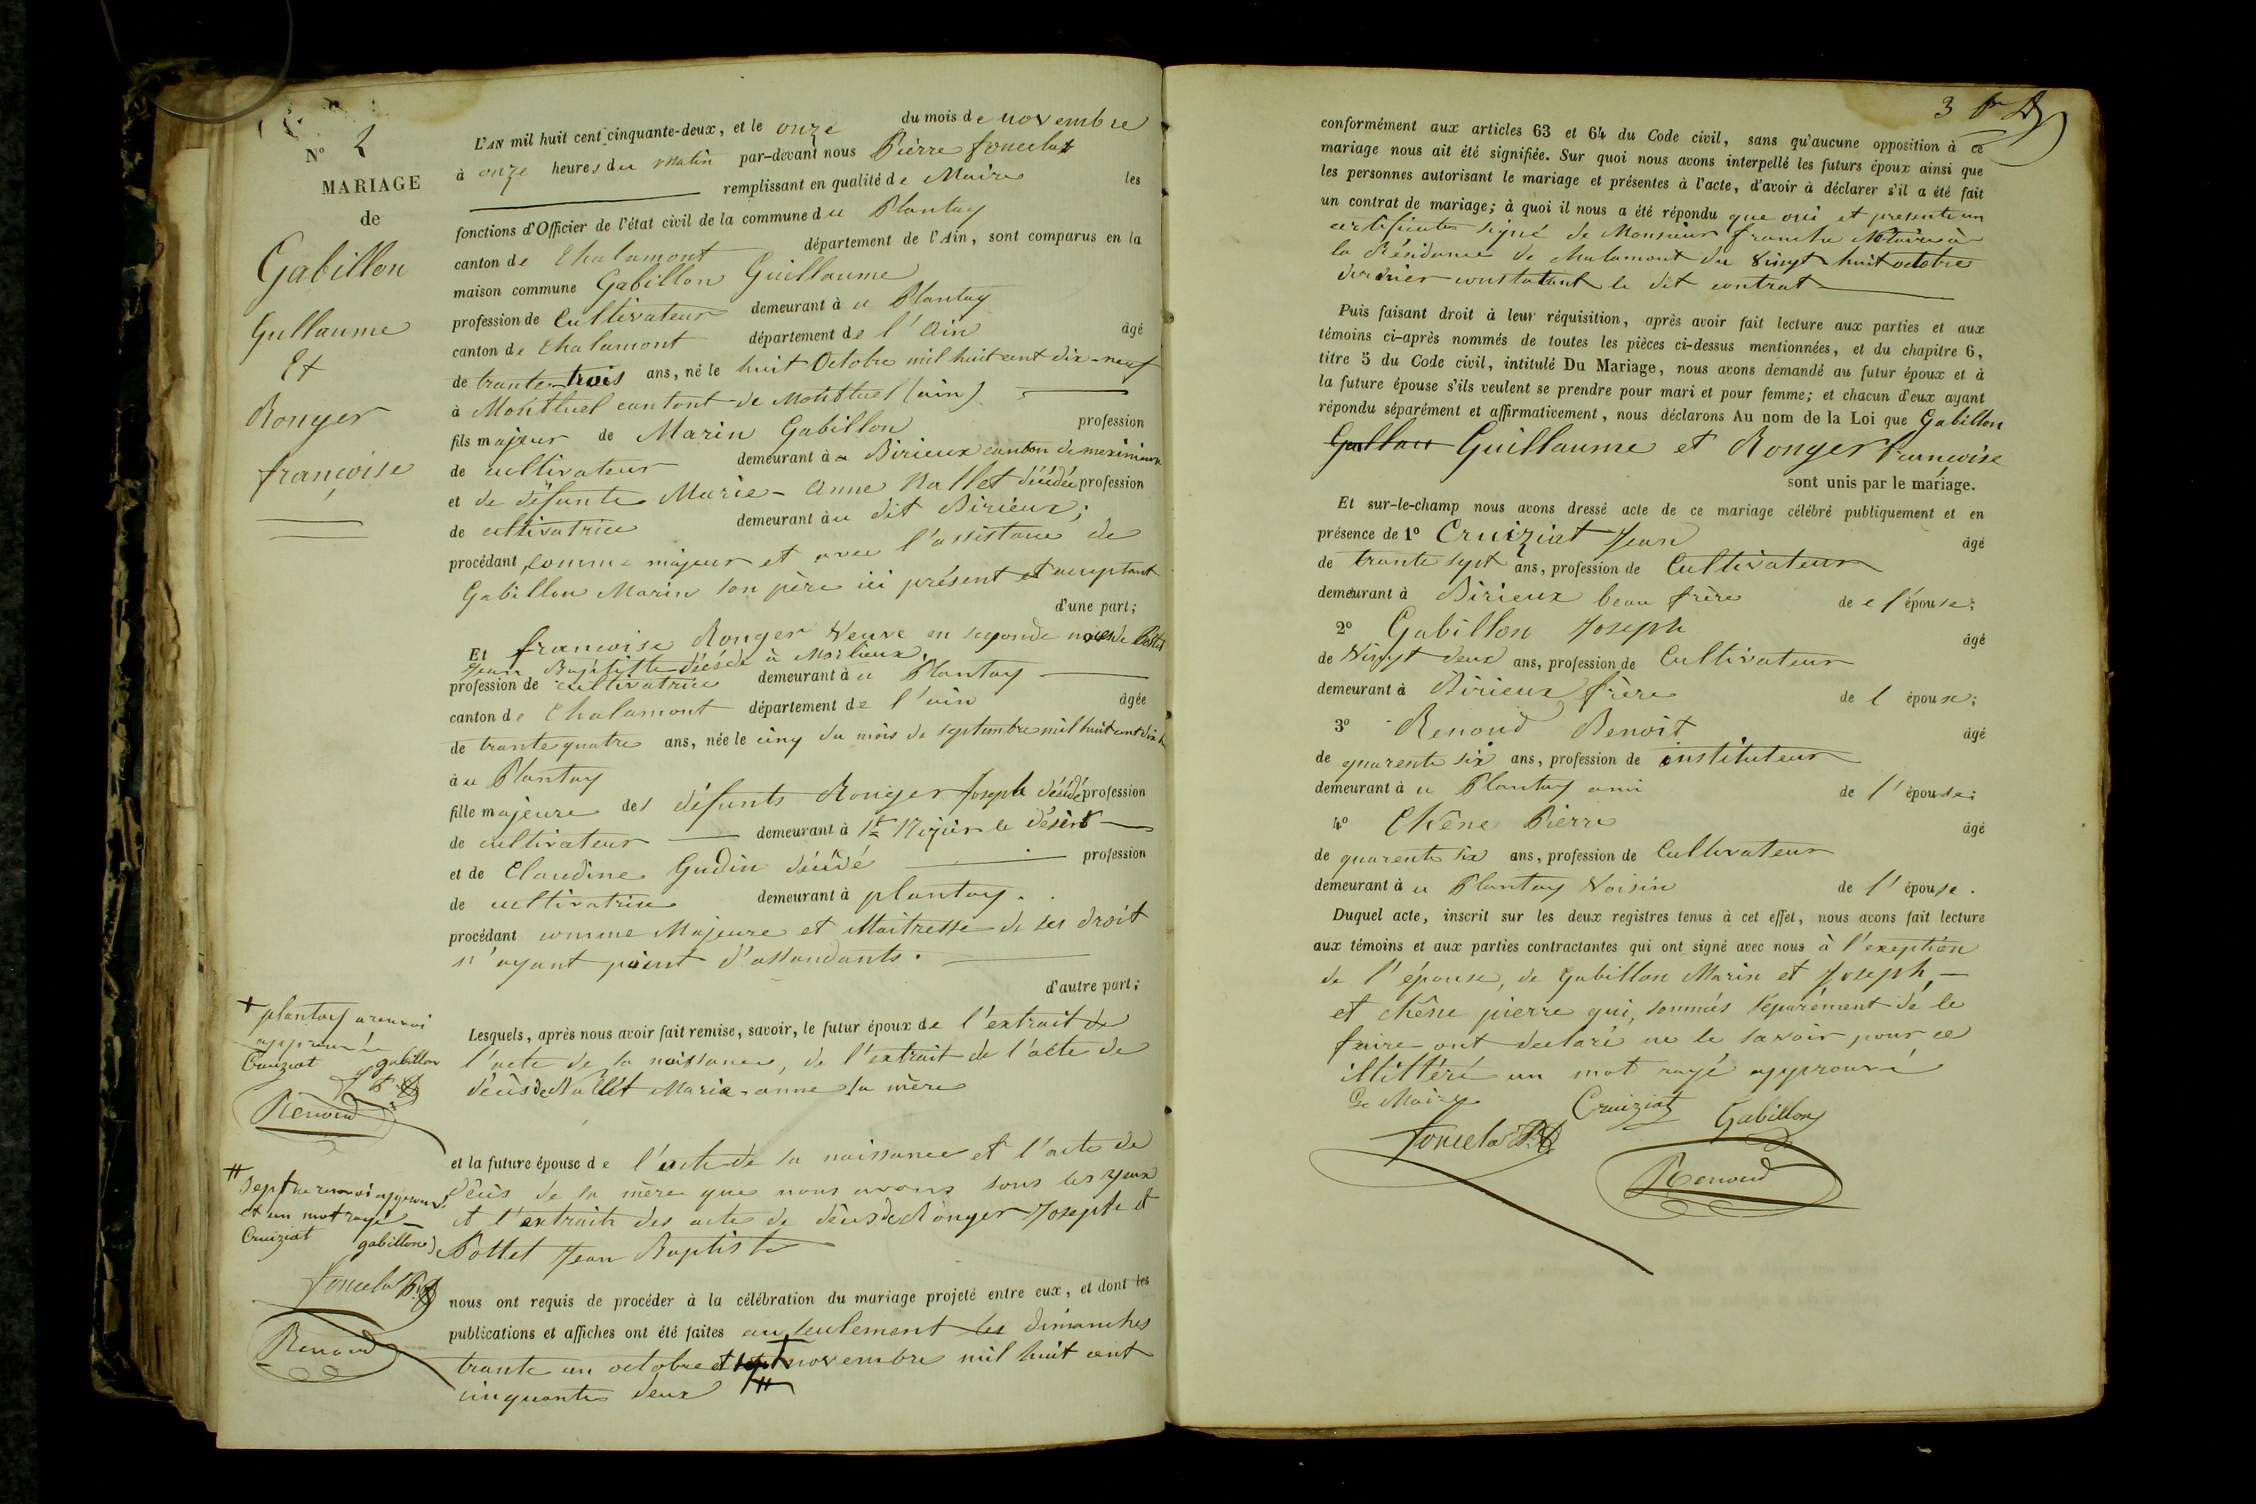 N° 2
MARIAGE
de
Gabillon
Gullaume
Et
Ronger
françoise
L'AN mil huit cent cinquante-deux, et le onze du mois de novembre
à onze heures du matin par-devant nous Pierre
remplissant en qualité de Maire les
fonctions d'Officier de l'état civil de la commune du Plantay
canton de Chalamont département de l'Ain, sont comparus en la
maison commune Gabillon Guillaume
profession de Cultivateur demeurant à u Plantay
canton de Chalamont département de l'Ain âgé
de trante-trois ans, né le huit Octobre mil huit cent dix-neuf
à Montluel cantont de Montluel (ain)
fils majeur de Marin Gabillon profession
de cultivateur demeurant à a Birieux canton de meximieux
et de défunte Marie-Anne Nallet décédée profession
de cultivatrice demeurant àu dit Birieux;
procédant comme majeur et avec l'assistance de
Gabillon Marin son père ici présent et acceptant
d'une part;
Et françoise Ronger Veuve en seconde noces de
Jean Baptiste décédé à Marlieux
profession de cultivatrice demeurant à u Plantay
canton de Chalamont département de l'ain âgée
de trante quatre ans, née le cinq du mois de septembre mil huit cent dix h
à u Plantay
fille majeure des défunts Ronger Joseph décédé profession
de cultivateur demeurant à St Nizier le désert
et de Claudine Gudin décédé profession
de cultivatrice demeurant à plantay.
procédant comme Majeure et Maitresse de ses droit
n'ayant point d'assandants.
d'autre part;
+ plantay a renvoi
approuvée
Cruiziat gabillon
Renoud
Lesquels, après nous avoir fait remise, savoir, le futur époux de l'extrait de
l'acte de sa naissance, de l'extrait de l'acte de
décès de Nallet Marie-anne sa mère
et la future épouse de l'acte de sa naissance et l'acte de
décès de sa mère que nous avons sous les yeux
et l'extraits des acte de décès de Ronger Joseph et
de Pottet Jean Baptiste
# Sept ne renvoi approuvé
et un mot rayé
Cruiziat gabillon
Renoud
nous ont requis de procéder à la célébration du mariage projeté entre eux, et dont les
publications et affiches ont été faites au seulement les dimanches
trante un octobre et sept novembre mil huit cent
cinquante deux #
3
conformément aux articles 63 et 64 du Code civil, sans qu'aucune opposition à ce
mariage nous ait été signifiée. Sur quoi nous avons interpellé les futurs époux ainsi que
les personnes autorisant le mariage et présentes à l'acte, d'avoir à déclarer s'il a été fait
un contrat de mariage; à quoi il nous a été répondu que oui et presente un
certificates signé de Monsieur Notaire à
la Résidance de Chalamont du Vingt huit octobre
dernier constatant le dit contrat
Puis faisant droit à leur réquisition, après avoir fait lecture aux parties et aux
témoins ci-après nommés de toutes les pièces ci-dessus mentionnées, et du chapitre 6,
titre 5 du Code civil, intitulé Du Mariage, nous avons demandé au futur époux et à
la future épouse s'ils veulent se prendre pour mari et pour femme; et chacun d'eux ayant
répondu séparément et affirmativement, nous déclarons Au nom de la Loi que Gabillon
Guillaume et Ronger françoise
sont unis par le mariage.
Et sur-le-champ nous avons dressé acte de ce mariage célébré publiquement et en
présence de 1° Cruiziat Jean âgé
de trante sept ans, profession de Cultivateur
demeurant à Birieux beau frère de e l'épouse;
2° Gabillon Joseph âgé
de Vingt deux ans, profession de Cultivateur
demeurant à Birieux frère de l épouse;
3° Renoud Benoit âgé
de quarente six ans, profession de instituteur
demeurant à u Plantay ami de l'épouse;
4° Chêne Pierre âgé
de quarente six ans, profession de Cultivateur
demeurant à u Plantay Voisin de l'épouse.
Duquel acte, inscrit sur les deux registres tenus à cet effet, nous avons fait lecture
aux témoins et aux parties contractantes qui ont signé avec nous à l'exeption
de l'épouse, de Gabillon Marin et Joseph,
et chêne pierre qui, sommés séparément de le
faire ont declaré ne le savoir pour ce
illittéré un mot rayé approuvé
Le Maire Cruiziat Gabillon
Renoud